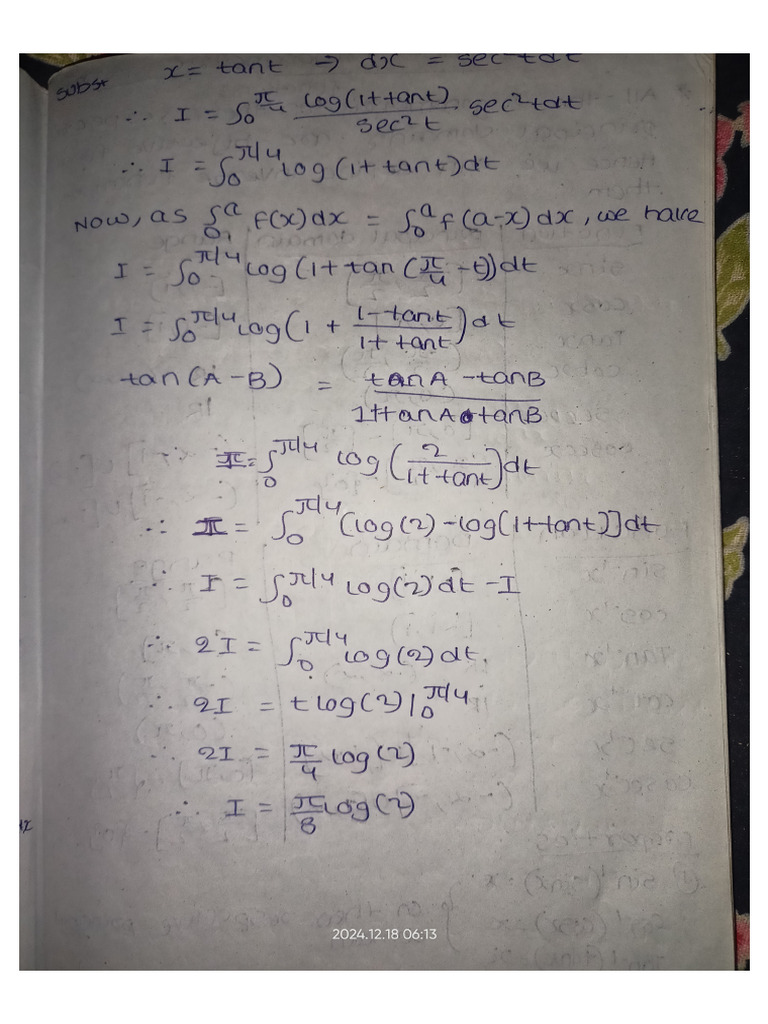 subst x = tant → dx = sec²tdt
∴ I = ∫₀^π/4 log(1+tant)/sec²t sec²tdt
∴ I = ∫₀^π/4 log(1+tant)dt
Now, as ∫₀^a f(x)dx = ∫₀^a f(a-x)dx, we have
I = ∫₀^π/4 log(1+tan(π/4 -t))dt
I = ∫₀^π/4 log(1 + (1-tant)/(1+tant))dt
tan(A-B) = (tanA -tanB)/(1+tanA•tanB)
I = ∫₀^π/4 log(2/(1+tant))dt
∴ I = ∫₀^π/4 (log(2) -log(1+tant)]dt
∴ I = ∫₀^π/4 log(2)dt -I
∴ 2I = ∫₀^π/4 log(2)dt.
∴ 2I = tlog(2)|₀^π/4
∴ 2I = π/4 log(2)
∴ I = π/8 log(2)
2024.12.18 06:13